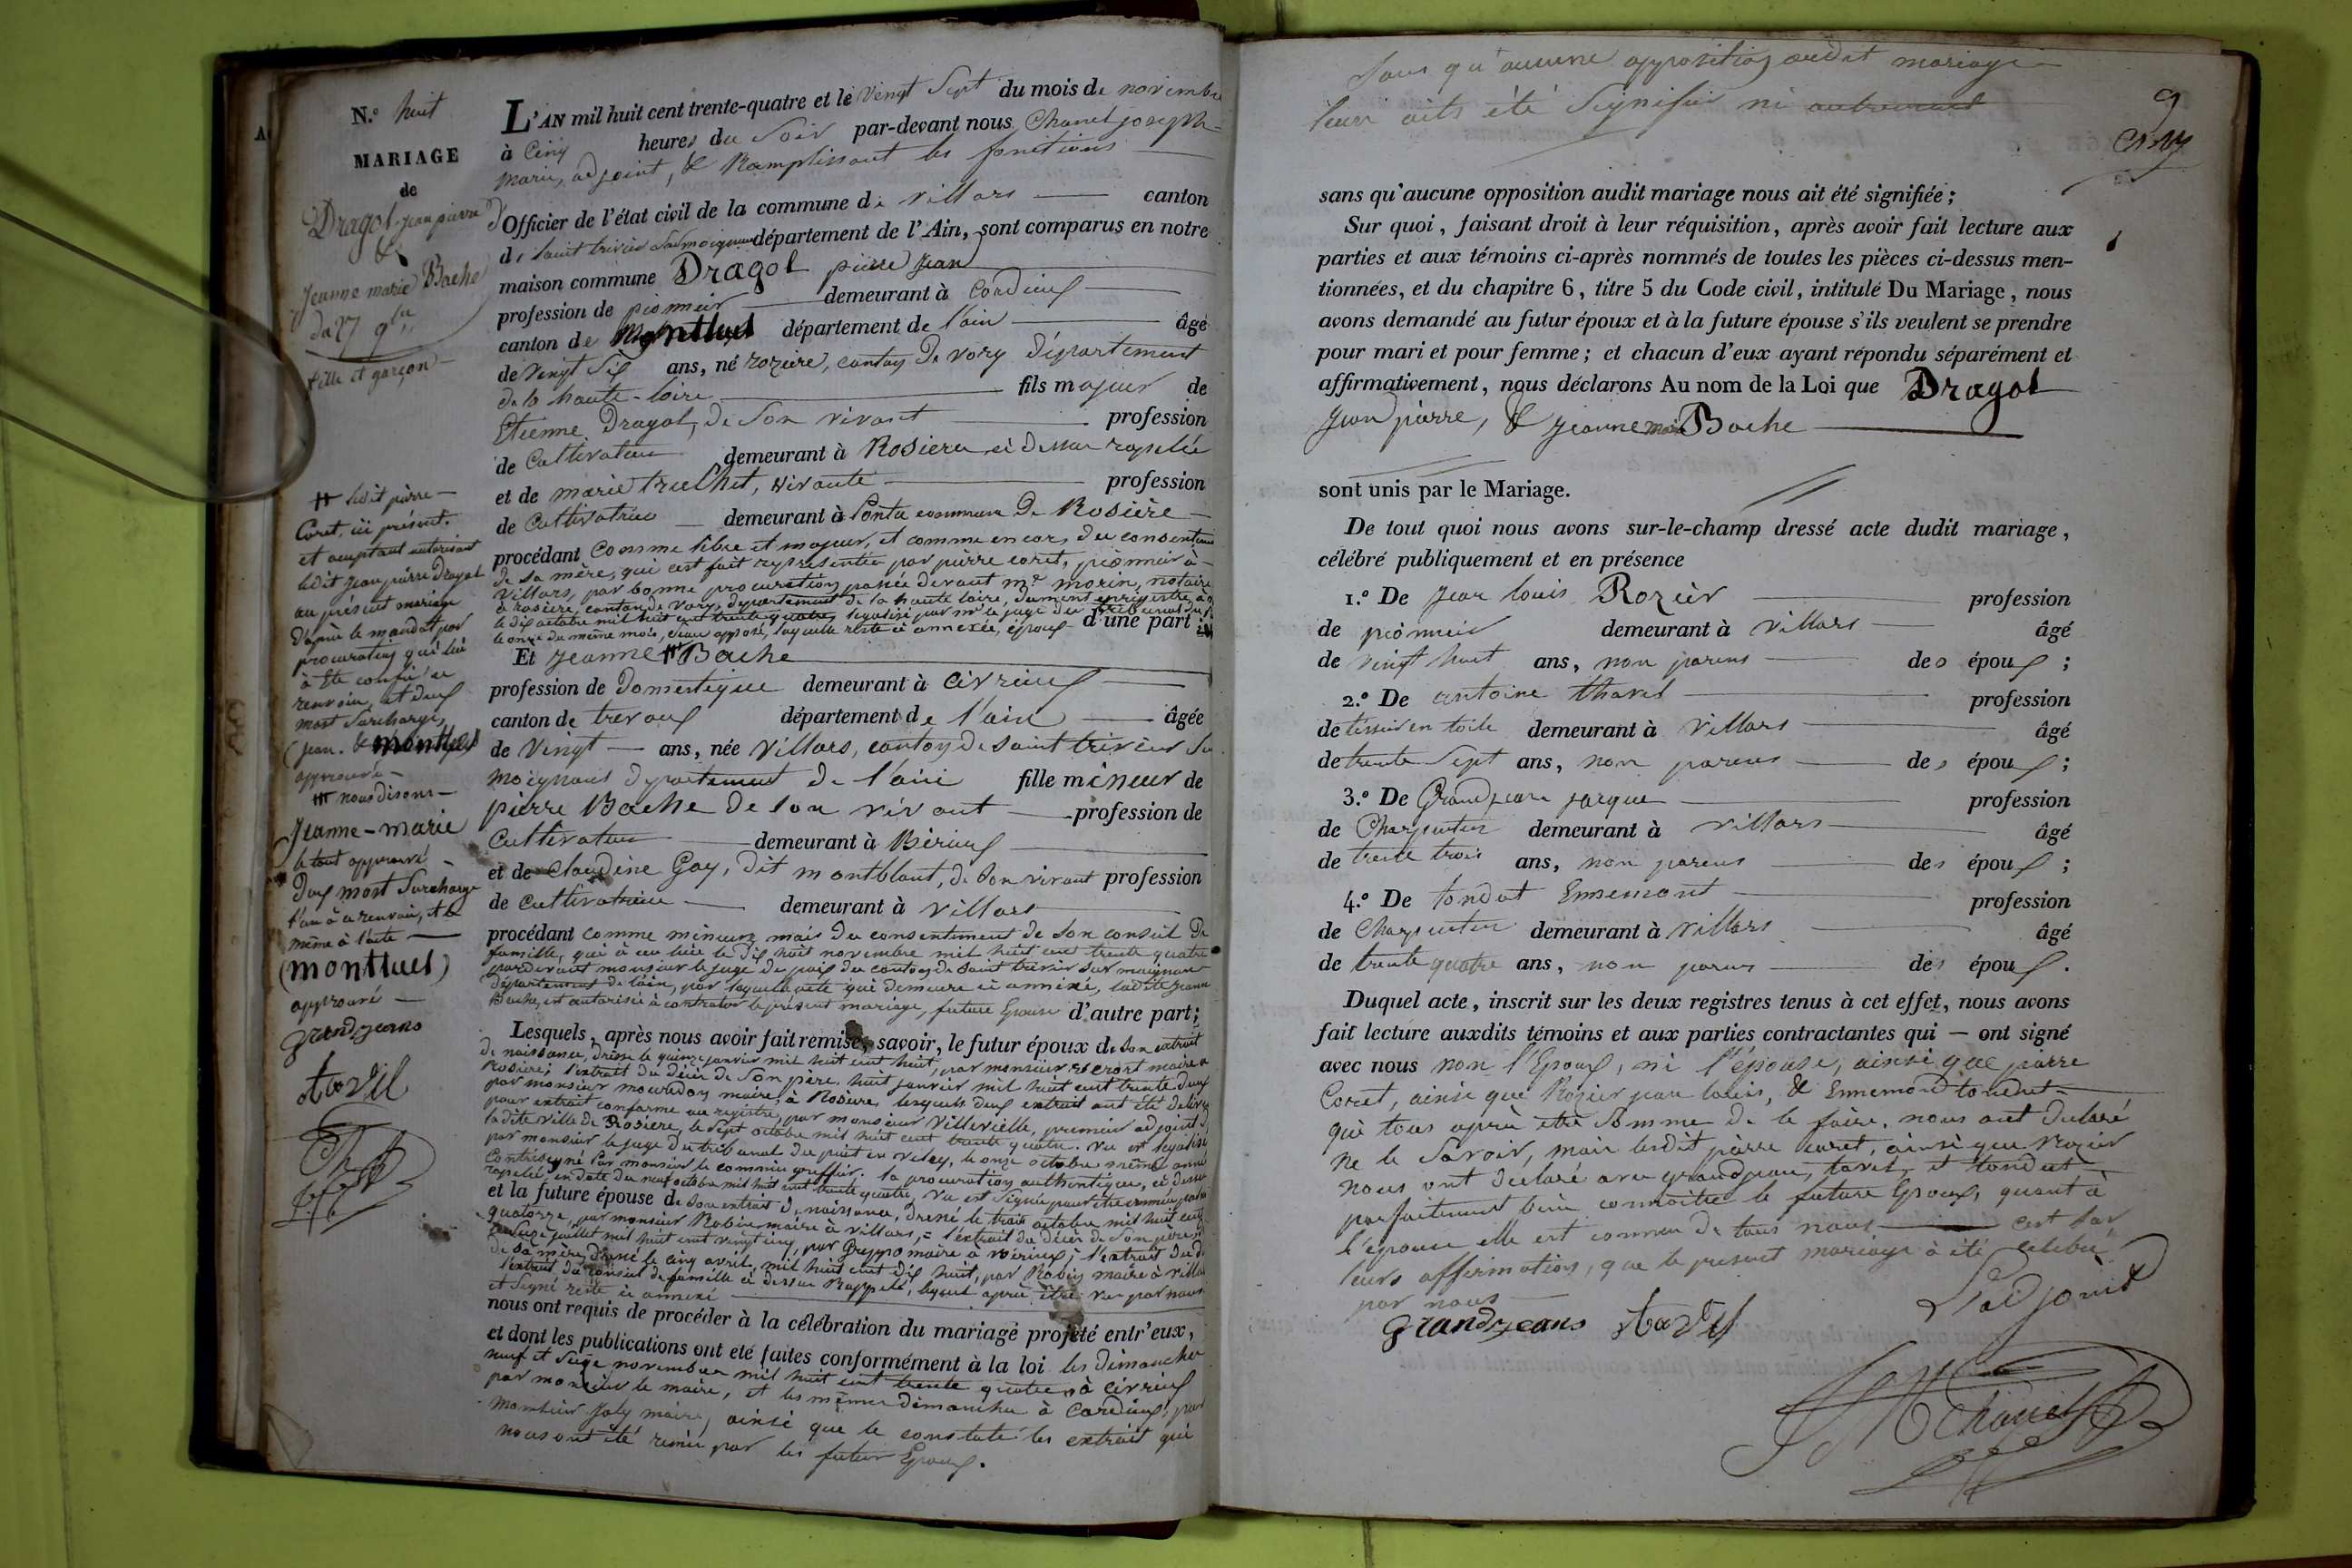 N.o huit
MARIAGE
de
Dragol jean pierre
&
Jeanne marie Bache
du 27 9bre
fille et garçon
L'AN mil huit cent trente-quatre et le vingt Sept du mois de novembre
à Cinq heures du Soir par-devant nous Chanel joseph
marie, adjoint, & Ramplissant les fonctions
d'Officier de l'état civil de la commune de villars canton
de Saint trivier Sur moignans département de l'Ain, sont comparus en notre
maison commune Dragol pierre Jean
profession de pionnier demeurant à Cordieux
canton de Montluel département de l'ain âgé
de vingt Six ans, né rozière, canton De vory Département
de la haute-loire fils majeur de
Etienne Dragol, de Son vivant profession
de Cultivateur demeurant à Rosiere ci dessus rapelée
et de marie truchet, vivante profession
de Cultivatrice demeurant à commune De Rosière
procédant Comme libre et majeur, et comme encore du consentement
de Sa mère, qui c'est fait représentée par pierre coret, pionnier à
villars, par bonne procuration passée devant mr morin, notaire
à rosière, canton de vory, département de la haute loire, dument enrigistré
le dix octobre mil huit cent trente quatre, legalisé par mr le juge du tribunal
le onze du même mois, laquelle reste ci annexée, époux d'une part;
Et Jeanne # Bache
profession de Domestique demeurant à Civrieux
canton de trevoux département de l'ain âgée
de vingt ans, née Villars, canton de Saint trivier Sur
moignans département de l'ain fille mineur de
pierre Bache de Son vivant profession de
Cultivateur demeurant à Birieux
et de Claudine Gay, dit montblant, de Son vivant profession
de Cultivatrice demeurant à villars
procédant comme mineure mais du consentement de Son conseil De
famille, qui à eu lieu le Dix huit novembre mil huit cent trente quatre
pardevant monsieur le juge de paix du canton de Saint trivier Sur moignans
département de l'ain, par laquelle acte qui demeure ci annéxé, ladite Jeanne
Bache, est autorisée à contracter le présent mariage, future Epouse d'autre part;
Lesquels, après nous avoir fait remise, savoir, le futur époux de Son extrait
de naissance, Dressé le quinze janvier mil huit cent huit, par monsieur maire à
Rosière; l'extrait du décès de Son père huit janvier mil huit cent trente deux
par monsieur mouredon maire, à Rosière, lesquels deux extrait ont été delivré
pour extrait conforme au registre, par monsieur Villevielle, premier adjoint
ladite ville de Rosiere, le Sept octobre mil huit cent trente quatre. Vu et legalisé
par monsieur le juge du tribunal du puit en veley, le onze octobre même année
Contresigné Par monsieur le commis greffier, la procuration authentique, ci dessus
rapelée, en date du neuf octobre mil huit cent trente quatre,
et la future épouse de Son extrait de naissance, Dressé le trois octobre mil huit cent
quatorze, par monsieur Robin maire à villars, = l'extrait du décès de Son père
juillet mil huit cent vingt cinq, par Greppo maire à birieux; l'extrait du d
de Sa mère, Dressé le cinq avril, mil huit cent dix huit, par Robin maire à villars
l'extrait du conseil de famille ci dessus Rappelé, lequel après être vu par nous
et Signé reste ci annexé
nous ont requis de procéder à la célébration du mariage projeté entr'eux,
et dont les publications ont été faites conformément à la loi les dimanches
neuf et Seize novembre mil huit cent trente quatre, à Civrieux
par monsieur le maire, et les mêmes dimanches à Cordieux, par
monsieur Joly maire, ainsi que le constate les extrait qui
nous ont été remis par les futur Epoux.
# ledit pierre
Coret, ici présent.
et acceptant autorisant
ledit jean pierre Dragol
au présent mariage
D'après le mandat par
procuration qui lui
à Eté confié ce
renvoie, et deux
most Surchargés,
(jean. & Montluel
approuvé
# nous disons
Jeanne-marie
le tout approuvé
Deux most Surcharge
l'un à ce renvoie, et le
même à l'acte
(montluel)
approuvé
grandjeans
tavel
Sans qu'aucune opposition audit mariage
leur aits été Signifié ni autrement
9
sans qu'aucune opposition audit mariage nous ait été signifiée;
Sur quoi, faisant droit à leur réquisition, après avoir fait lecture aux
parties et aux témoins ci-après nommés de toutes les pièces ci-dessus men-
tionnées, et du chapitre 6, titre 5 du Code civil, intitulé Du Mariage, nous
avons demandé au futur époux et à la future épouse s'ils veulent se prendre
pour mari et pour femme; et chacun d'eux ayant répondu séparément et
affirmativement, nous déclarons Au nom de la Loi que Dragol
Jean pierre, & Jeanne marie Bache
sont unis par le Mariage.
De tout quoi nous avons sur-le-champ dressé acte dudit mariage,
célébré publiquement et en présence
1.o De Jean louis Rozier profession
de pionnier demeurant à villars âgé
de vingt huit ans, non parens des époux;
2.o De antoine thavel profession
de tissier en toile demeurant à Villars âgé
de trente Sept ans, non parens des époux;
3.o De Grandjean jacque profession
de Charpentier demeurant à villars âgé
de trente trois ans, non parens des époux;
4.o De tondut Ennemont profession
de Charpentier demeurant à Villars âgé
de trente quatre ans, non parens des époux.
Duquel acte, inscrit sur les deux registres tenus à cet effet, nous avons
fait lecture auxdits témoins et aux parties contractantes qui — ont signé
avec nous non l'Epoux, ni l'épouse, ainsi que pierre
Coret, ainsi que Rozier jean louis, & Ennemond tondut
qui tous après être Somme de le faire, nous ont declaré
ne le Savoir, mais lesdit pierre coret, ainsi que rozier
nous ont déclaré avec grandjean, tavel, et tondut
parfaitement bien connaitre le future Epoux, quant à
l'épouse elle est connue de tous nous c'est Sur
leurs affirmation, que le present mariage à été celebré
par nous
grandjeans tavel
L'adjoint
Chanel